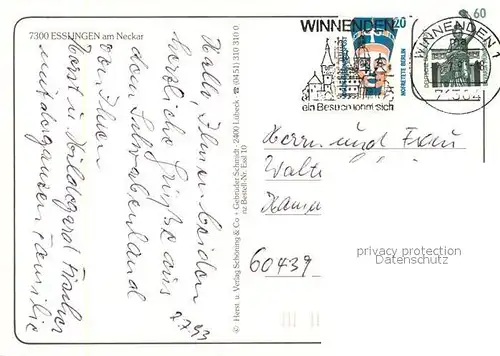 7300 ESSLINGEN am Neckar
Hallo, Ihnen beiden
herzliche Grüße aus
dem Schwabenland
von Ihren
Horst u. Hildegard Fischer
mit der ganzen Familie
2.7.93
© Herst. u. Verlag Schöning & Co · Gebrüder Schmidt · 2400 Lübeck · ☎ (0451) 310 310 0
nz Bestell-Nr. Essl 10
WINNENDEN
ein Besuch lohnt sich
20
NOFRETETE BERLIN
60
WINNENDEN 1
71364
Herrn und Frau
Walt
60439
privacy protection
Datenschutz